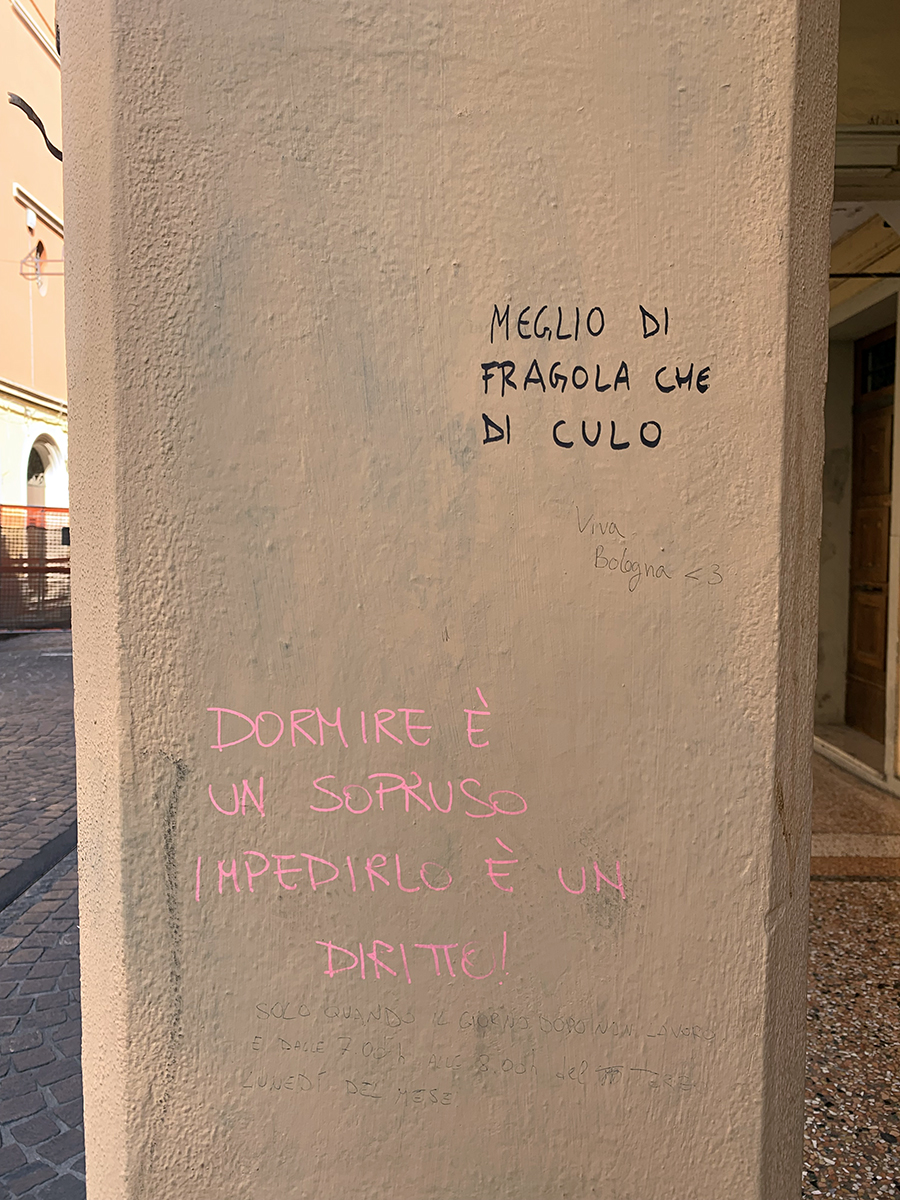 MEGLIO DI
FRAGOLA CHE
DI CULO
Viva
Bologna <3
DORMIRE È
UN SOPRUSO
IMPEDIRLO È UN
DIRITTO!
SOLO QUANDO IL GIORNO DOPO NON LAVORO
E DALLE 7.00h ALLE 8.00h del TERZO
LUNEDÍ DEL MESE